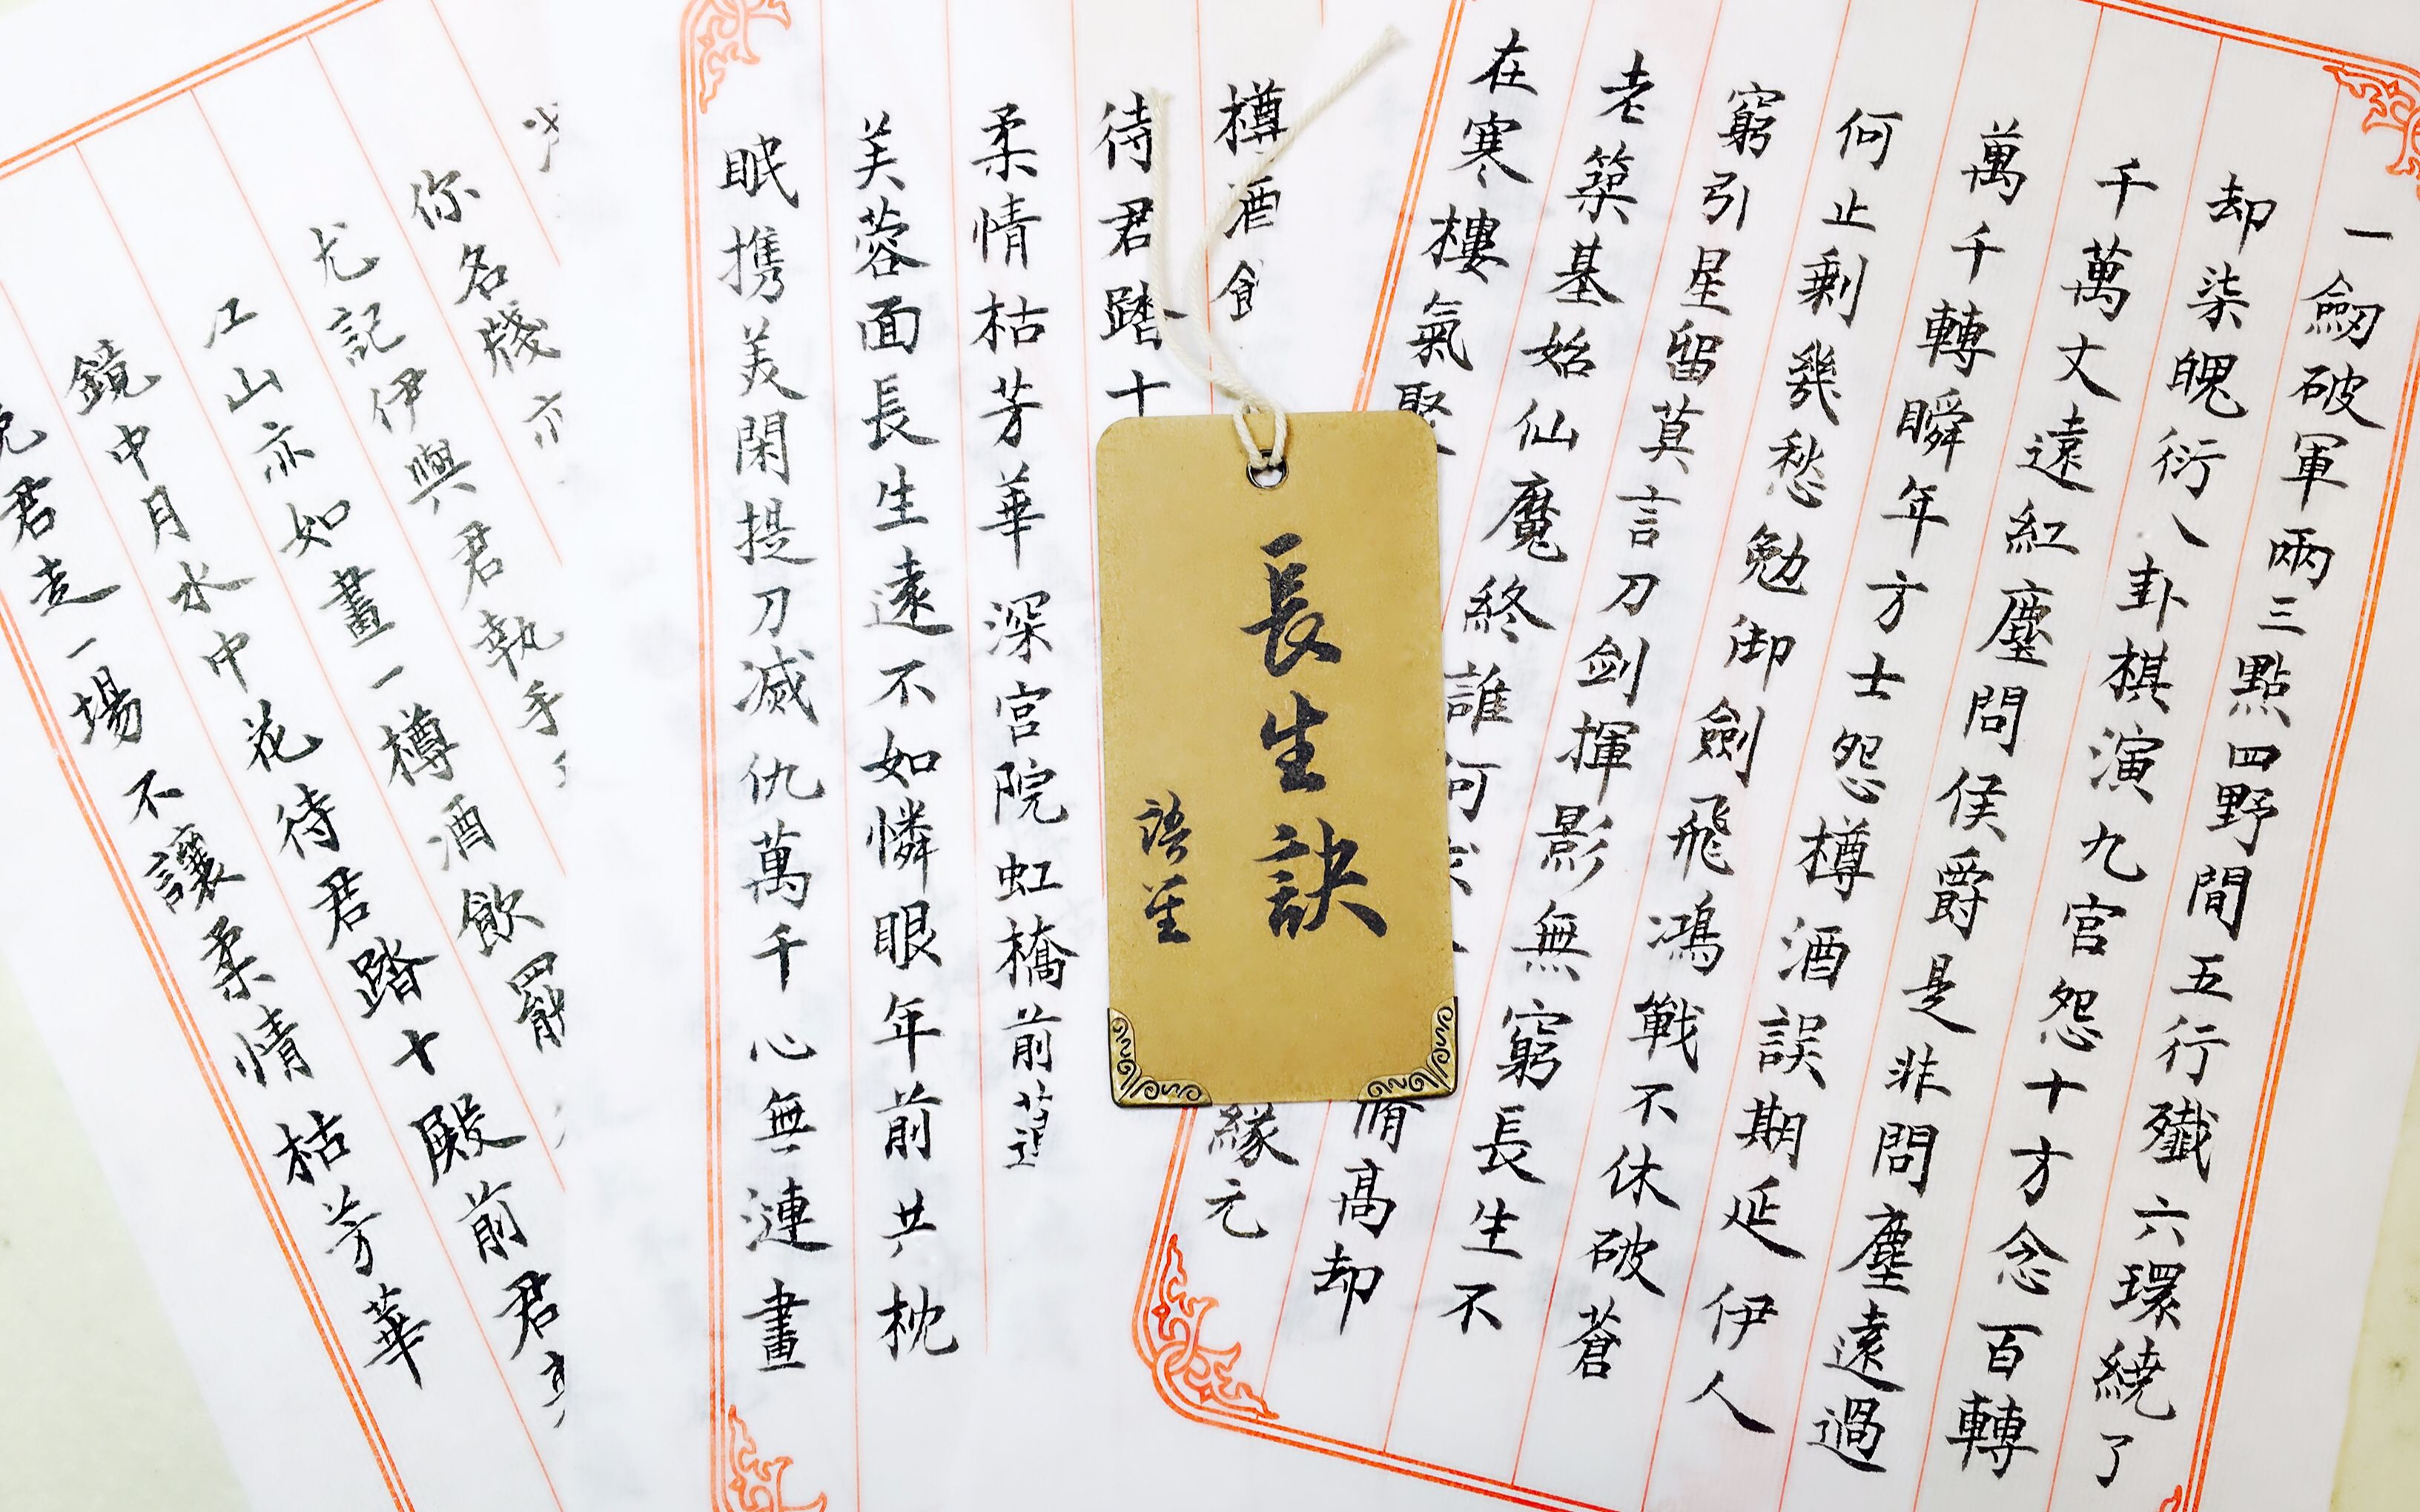 一劒破軍兩三點四野間五行殲六環繞了
却柒魄衍八卦棋演九宮怨十方念百轉
千萬丈遠紅塵問侯爵是非問塵遠過
萬千轉瞬年方士怨樽酒誤期延伊人
何止剩幾愁勉御劍飛鴻戰不休破蒼
窮引星留莫言刀剑揮影無窮長生不
老築基始仙魔終誰何
在寒樓氣聚
脩高却
緣元
長生訣
語堇
樽酒
待君踏十
柔情枯芳華深宮院虹橋前
芙蓉面長生遠不如憐眼年前共枕
眠携美閑提刀滅仇萬千心無漣畫
你名牋亦
尤記伊與君執手
江山亦如畫一樽酒飲罷
鏡中月水中花待君踏十殿前君
君走一場不讓柔情枯芳華